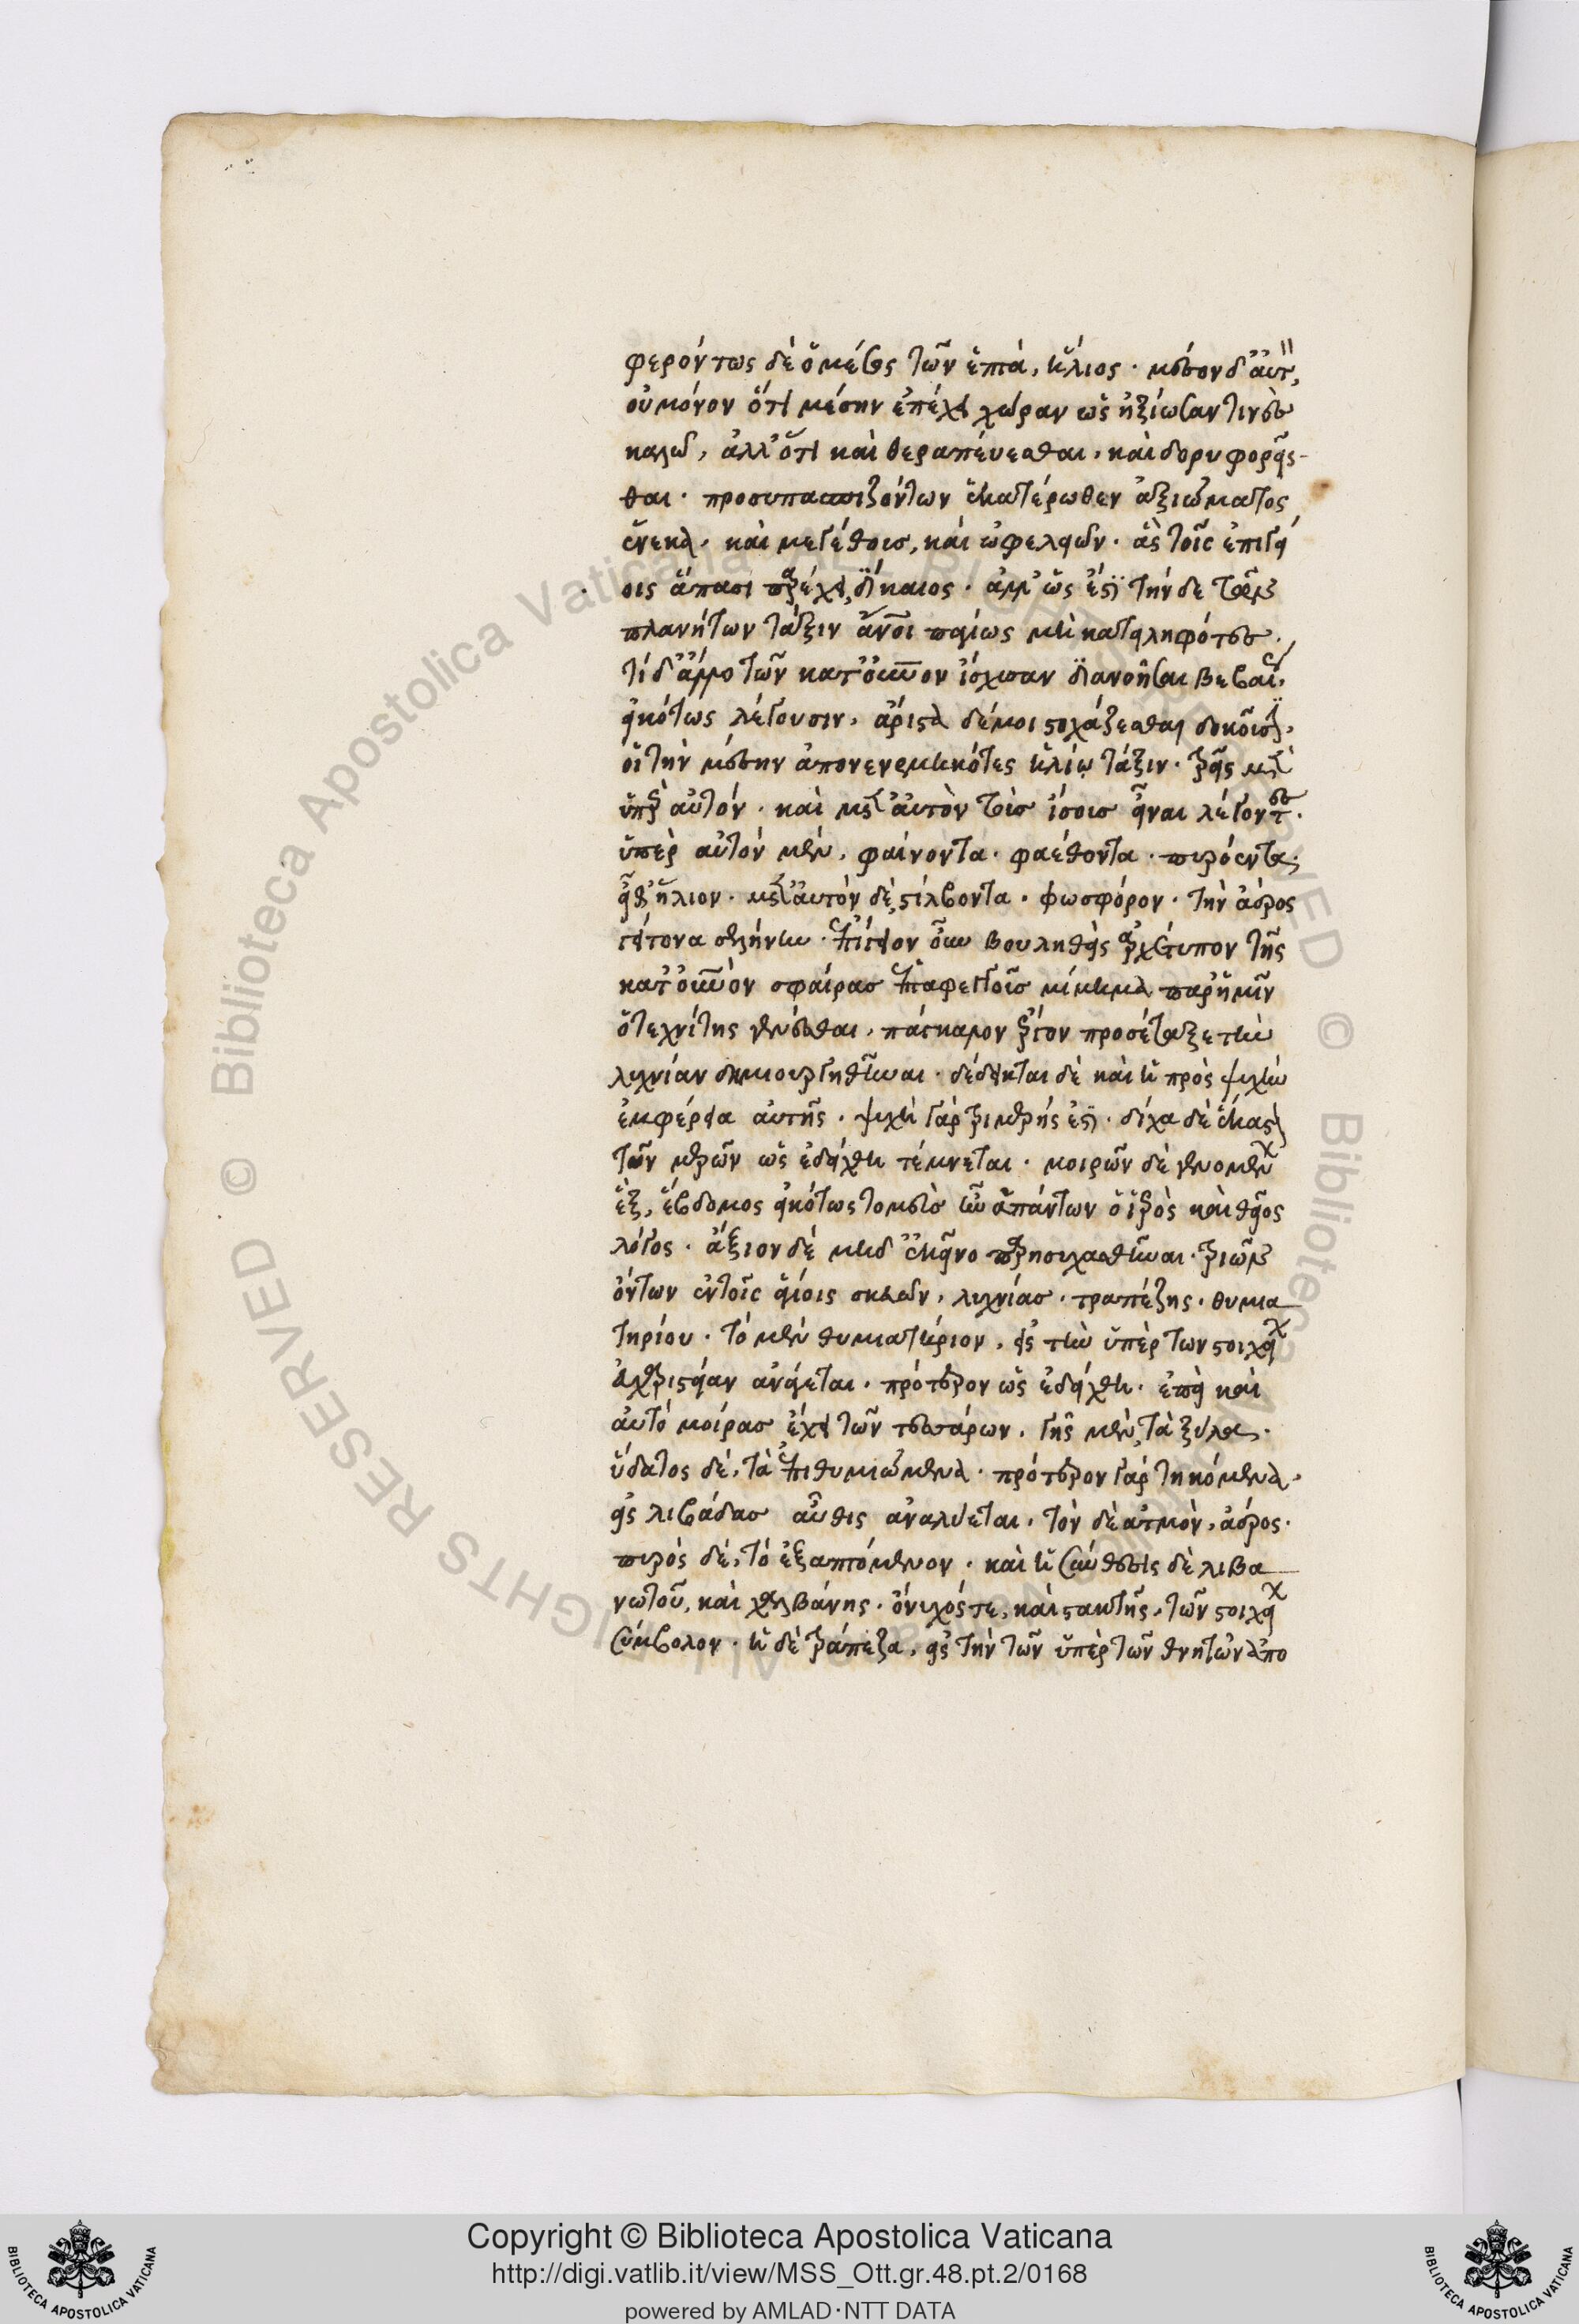 φερόντως δὲ ὁ μέσος τῶν ἑπτὰ, ἥλιος · μέσον δ' αὐτ,
οὐ μόνον ὅτι μέσην ἐπέχει χώραν ὡς ἠξίωσαν τινὲς
καλεῖν, ἀλλ' ὅτι καὶ θεραπεύεσθαι, καὶ δορυφορεῖσ-
θαι · προσυπασπιζόντων ἑκατέρωθεν ἀξιώματος
ἕνεκα · καὶ μεγέθους, καὶ ὠφελειῶν · ἃς τοῖς ἐπιγεί
οις ἅπασι παρέχει, δίκαιος · ἀλλ' ὡς ἔστι τήνδε τῶν
πλανήτων τάξιν ἄνοι παγίως μὴ κατειληφότες ·
τί δ' ἄλλο τῶν κατ' οὐνον ἴσχυσαν διανοῆσαι βεβαί,
εἰκότως λέγουσιν, ἄριστα δέ μοι στοχάζεσθαι δοκοῦσι,
οἱ τὴν μέσην ἀπονενεμηκότες ἡλίῳ τάξιν · τρεῖς μὲν
ὑπὲρ αὐτόν · καὶ μετ' αὐτὸν τοὺς ἴσους εἶναι λέγοντες ·
ὑπὲρ αὐτόν μὲν, φαίνοντα · φαέθοντα · πυρόεντα ·
εἶθ' ἥλιον · μετ' αὐτόν δὲ, στίλβοντα · φωσφόρον · τὴν ἀέρος
γείτονα σελήνην · ἐπίγειον οὖν βουληθεὶς ἀρχέτυπον τῆς
κατ' οὐνὸν σφαίρας ἑπταφεγγοῦς μίμημα παρ' ἡμῖν
ὁ τεχνίτης γενέσθαι, πάγκαλον ἔργον προσέταξε τὴν
λυχνίαν δημιουργηθῆναι · δέδεικται δὲ καὶ ἡ πρὸς ψυχὴν
ἐμφέρεια αὐτῆς · ψυχὴ γὰρ τριμερής ἐστι · δίχα δὲ ἕκαστον
τῶν μερῶν ὡς ἐδείχθη τέμνεται · μοιρῶν δὲ γενομένων
ἓξ, ἕβδομος εἰκότως τομεὺς ἦν ἁπάντων ὁ ἱερὸς καὶ θεῖος
λόγος · ἄξιον δὲ μηδ' ἐκεῖνο παρησυχασθῆναι · τριῶν
ὄντων ἐν τοῖς ἁγίοις σκευῶν, λυχνίας · τραπέζης · θυμια
τηρίου · τὸ μὲν θυμιατήριον, εἰς τὴν ὑπὲρ τῶν στοιχείων
εὐχαριστείαν ἀνάγεται · πρότερον ὡς ἐδείχθη · ἐπεὶ καὶ
αὐτό μοίρας ἔχει τῶν τεσσάρων, γῆς μὲν, τὰ ξύλα ·
ὕδατος δὲ, τὰ ἐπιθυμιώμενα · πρότερον γὰρ τηκόμενα,
εἰς λιβάδας αὖθις ἀναλύεται, τὸν δὲ ἀτμὸν, ἀέρος ·
πυρὸς δὲ, τὸ ἐξαπτόμενον · καὶ ἡ σύνθεσις δὲ λιβα
νωτοῦ, καὶ χαλβάνης · ὄνυχός τε, καὶ στακτῆς, τῶν στοιχείων
σύμβολον · ἡ δὲ τράπεζα, εἰς τὴν τῶν ὑπὲρ τῶν θνητῶν ἀπο
Copyright © Biblioteca Apostolica Vaticana
http://digi.vatlib.it/view/MSS_Ott.gr.48.pt.2/0168
powered by AMLAD·NTT DATA